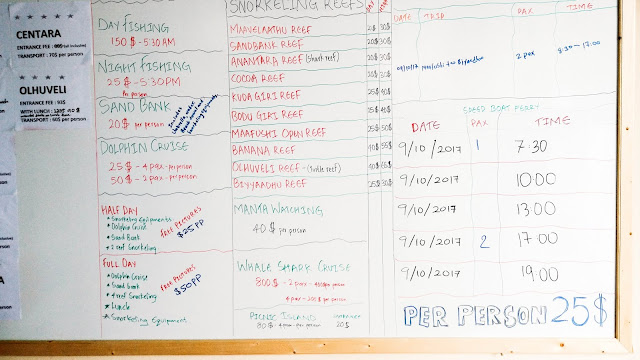 CENTARA
TRANSPORT : 70$ per person
OLHUVELI
ENTRANCE FEE : 93$
TRANSPORT : 60$ per person
DAY FISHING
150 $ - 5:30 AM
NIGHT FISHING
25 $ - 5:30 PM
Per person
SAND BANK
20$ per person
Includes
DOLPHIN CRUISE
25$ - 4 pax - per person
50$ - 2 pax - per person
HALF DAY
Snorkeling Equipments
Dolphin Cruise
Sand Bank
2 reef Snorkeling
free PICTURES
$25PP
FULL DAY
Dolphin Cruise
Sand bank
4 reef Snorkeling
Lunch
Snorkeling Equipment
free PICTURES
$50PP
SNORKELING REEFS
MAAVELAATHU REEF
SANDBANK REEF
ANANTARA REEF (Shark reef)
COCOA REEF
KUDA GIRI REEF
BODU GIRI REEF
MAAFUSHI OPEN REEF
BANANA REEF
OLHUVELI REEF - (turtle reef)
BIYYAADHU REEF
MANTA WATCHING
40 $ per person
WHALE SHARK CRUISE
800 $ - 2 pax - 400 per person
4 pax - 205 $ per person
PICNIC ISLAND
80$ - 4 pax - per person 20$
DATE TRIP PAX TIME
2 pax 8:30 - 17:00
SPEED BOAT FERRY
DATE PAX TIME
9/10/2017 1 7:30
9/10/2017 10:00
9/10/2017 13:00
9/10/2017 2 17:00
9/10/2017 19:00
PER PERSON 25$